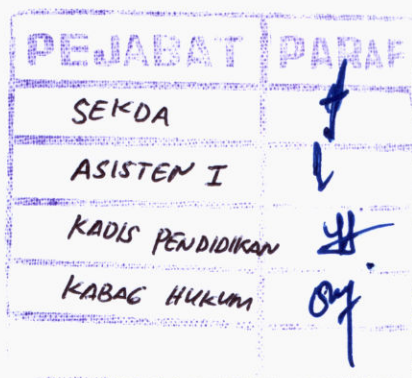 PEJABAT PARAF
SEKDA
ASISTEN I
KADIS PENDIDIKAN
KABAG HUKUM